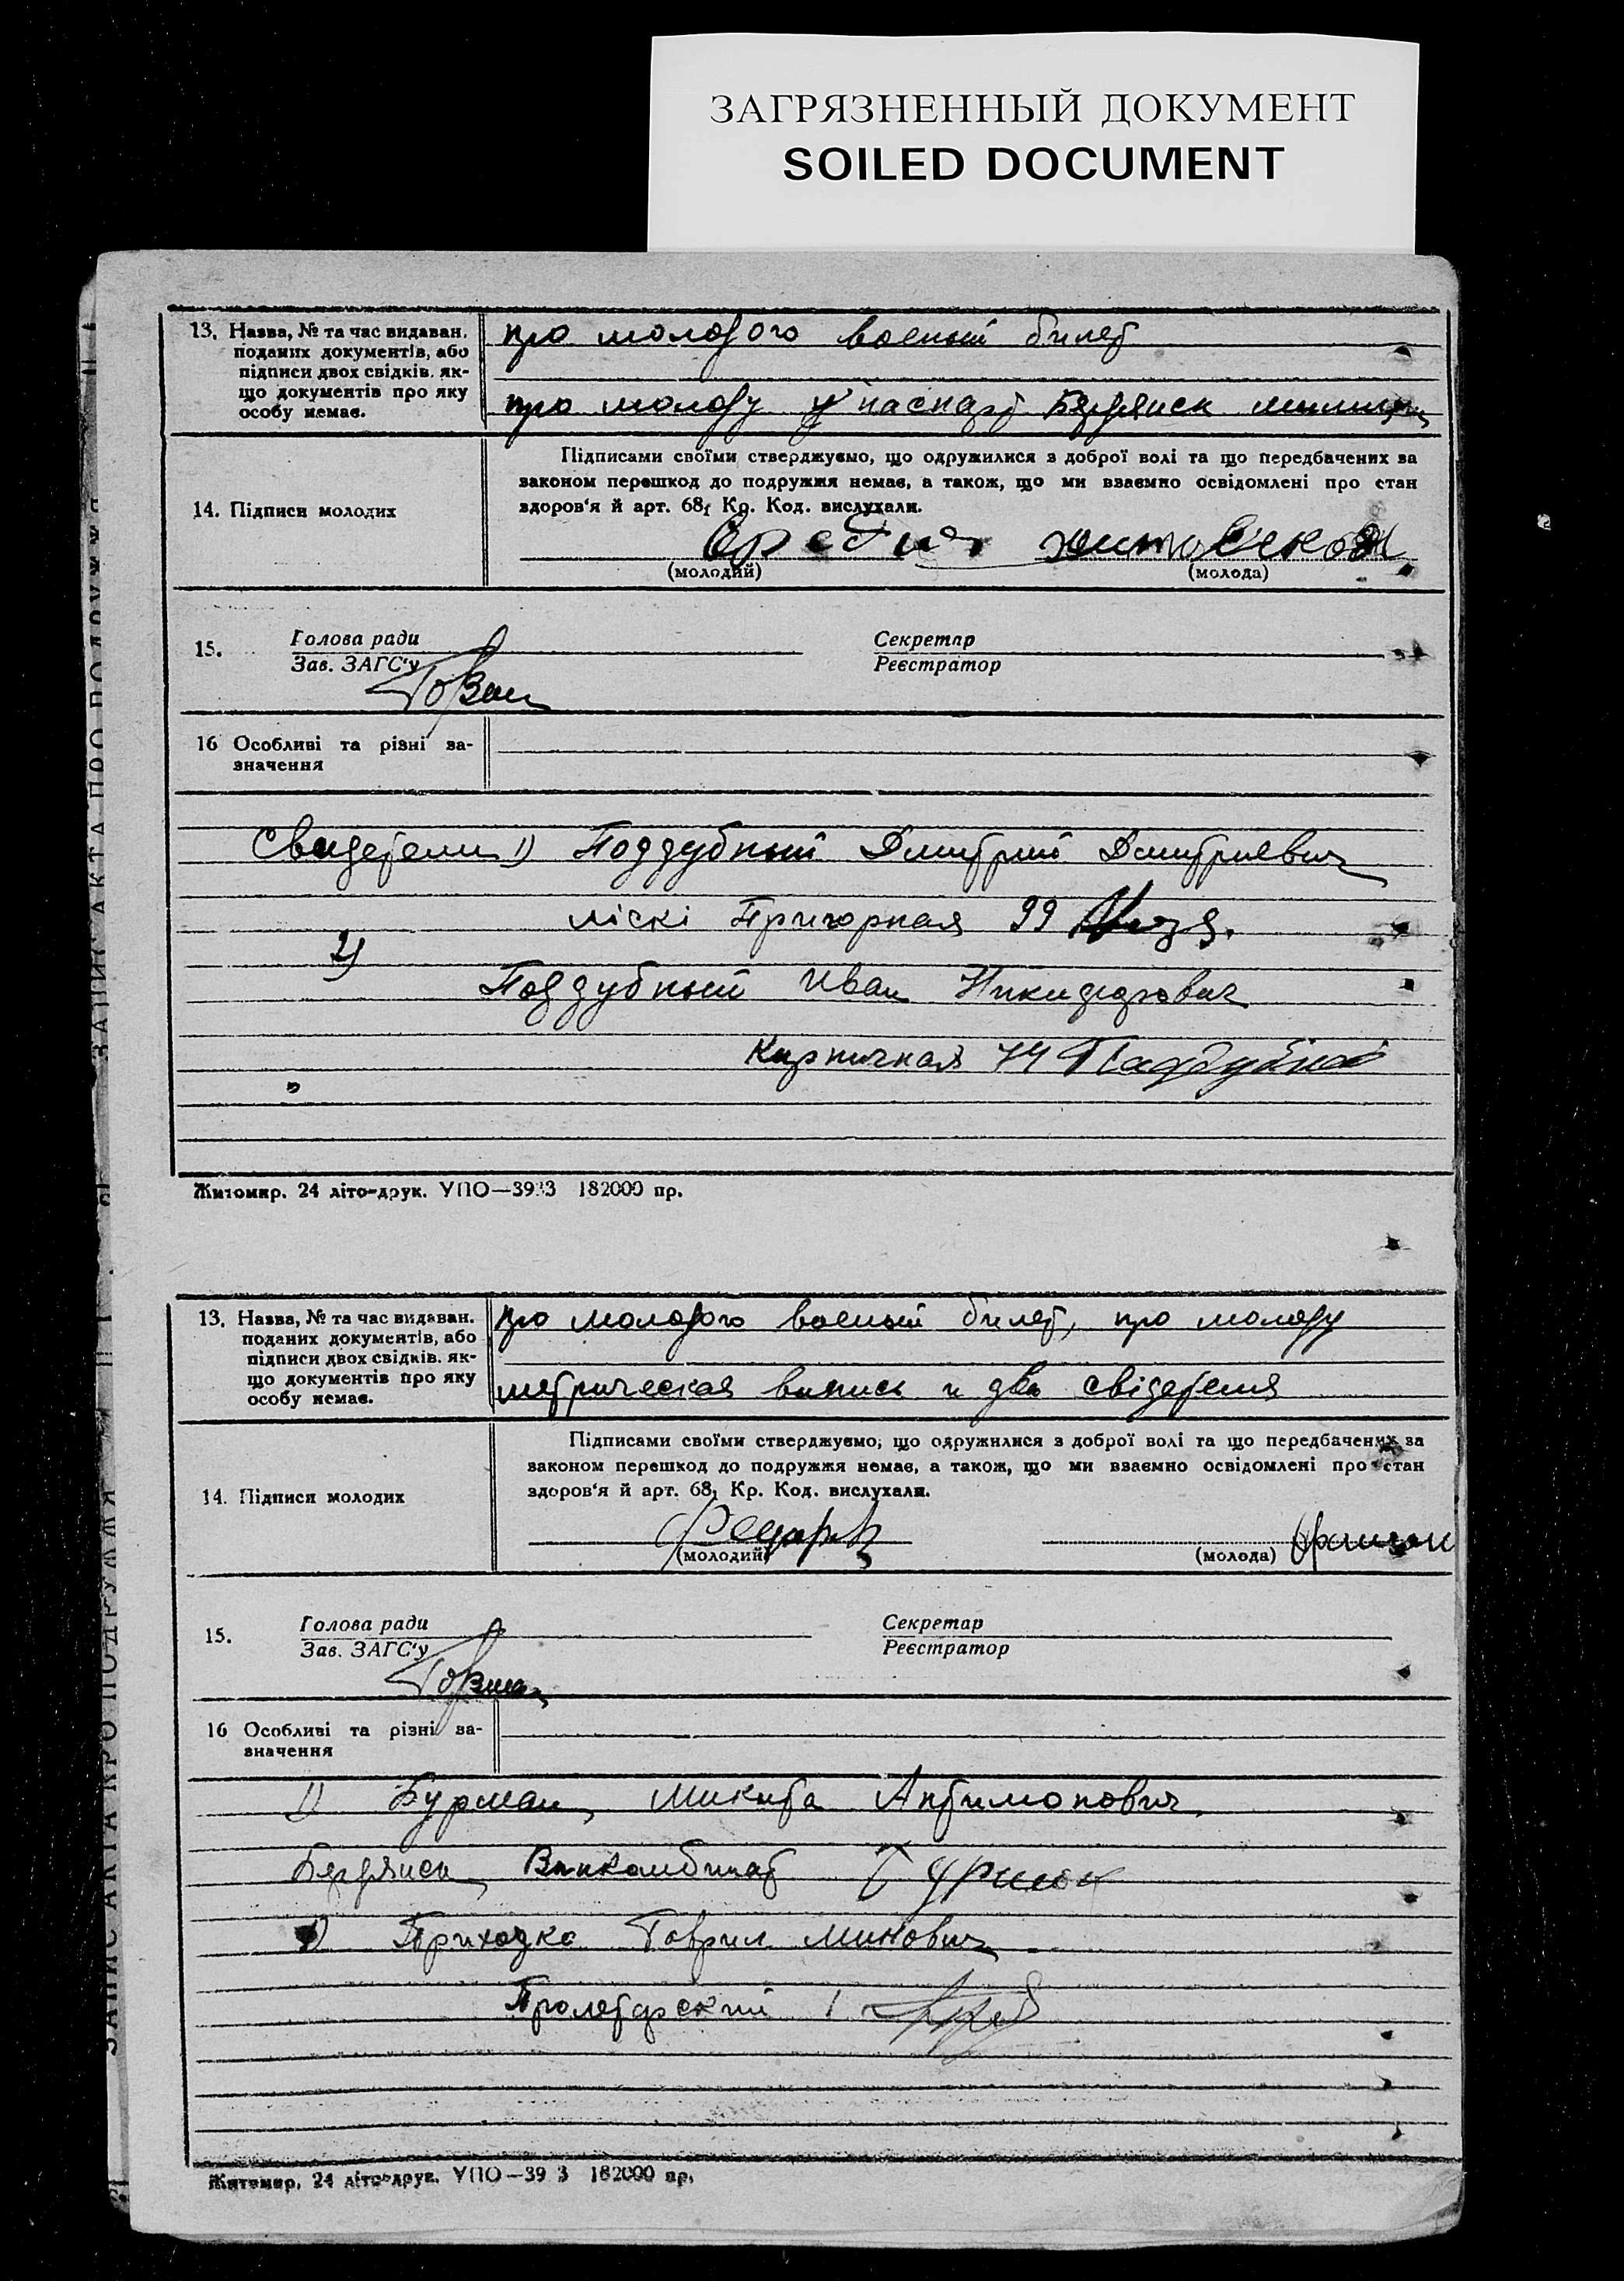 ЗАГРЯЗНЕННЫЙ ДОКУМЕНТ
SOILED DOCUMENT
13. Назва, № та час видаван.
поданих документів, або
підписи двох свідків. як-
що документів про яку
особу немає.
про молодого военый билет
про молоду паспорт Бердянск милиции
14. Підписи молодих
Підписами своїми стверджуємо, що одружилися з доброї волі та що передбачених за
законом перешкод до подружжя немає, а також, що ми взаємно освідомлені про стан
здоров'я й арт. 68₁ Кр. Код. вислухали.
(молодий) (молода)
15. Голова ради Секретар
Зав. ЗАГС'у Реєстратор
16 Особливі та різні за-
значення
Свидетели 1) Поддубный Дмитрий Дмитриевич
ліскі Пригорная 99
2)
Поддубный Иван Никифорович
Кирпичная 74 Паддубный
Житомир. 24 літо-друк. УПО—3933 182000 пр.
13. Назва, № та час видаван.
поданих документів, або
підписи двох свідків. як-
що документів про яку
особу немає.
про молодого военый билет, про молоду
метрическая випись и два свідетеля
14. Підписи молодих
Підписами своїми стверджуємо, що одружилися з доброї волі та що передбачених за
законом перешкод до подружжя немає, а також, що ми взаємно освідомлені про стан
здоров'я й арт. 68₁ Кр. Код. вислухали.
(молодий) (молода)
15. Голова ради Секретар
Зав. ЗАГС'у Реєстратор
16 Особливі та різні за-
значення
1) Бурман Микита Антимонович
Бердянск Винкомбинат
2) Приходко Гаврил Минович
Пролетарский 1
Житомир, 24 літо-друк. УПО—39 3 182000 пр.
ЗАПИС АКТА ПРО ПОДРУЖЖЯ
ЗАПИС АКТА ПРО ПОДРУЖЖЯ